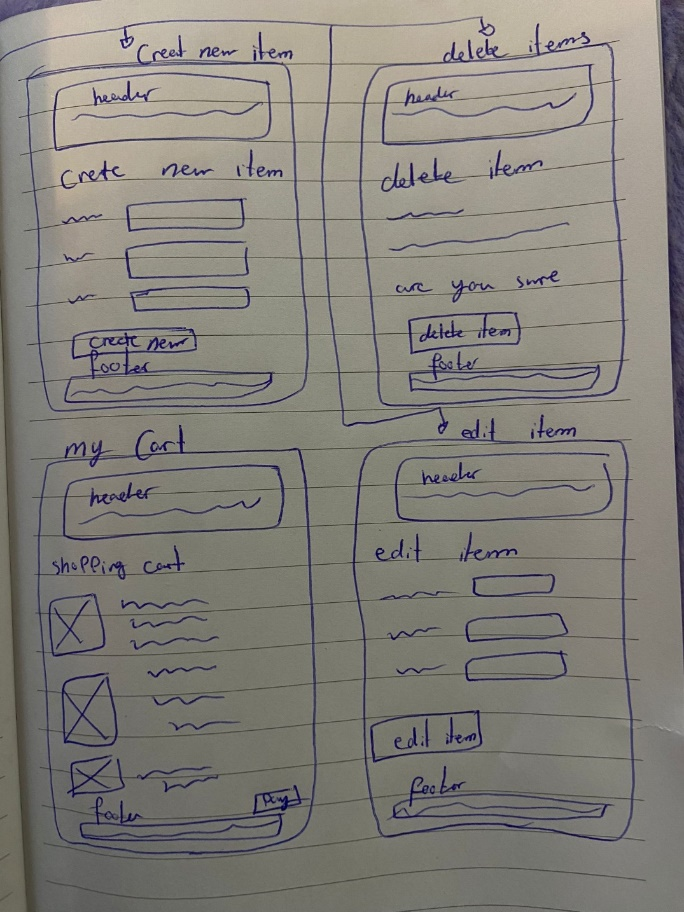 Creet new item
header
Crete new item
create new
footer
delete items
header
delete item
are you sure
delete item
footer
my Cart
header
shopping cart
Pay
footer
edit item
header
edit item
edit item
footer